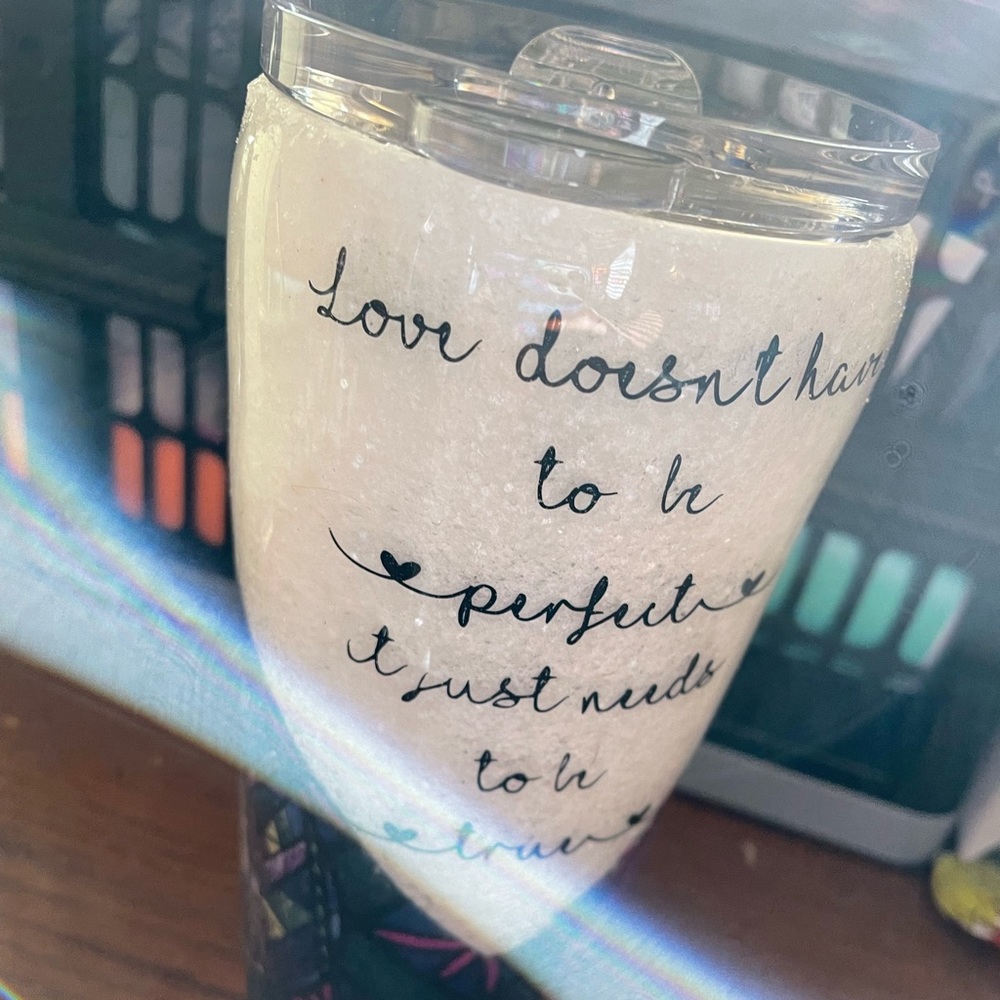 Love doesn't have
to be
perfect
it just needs
to be
true